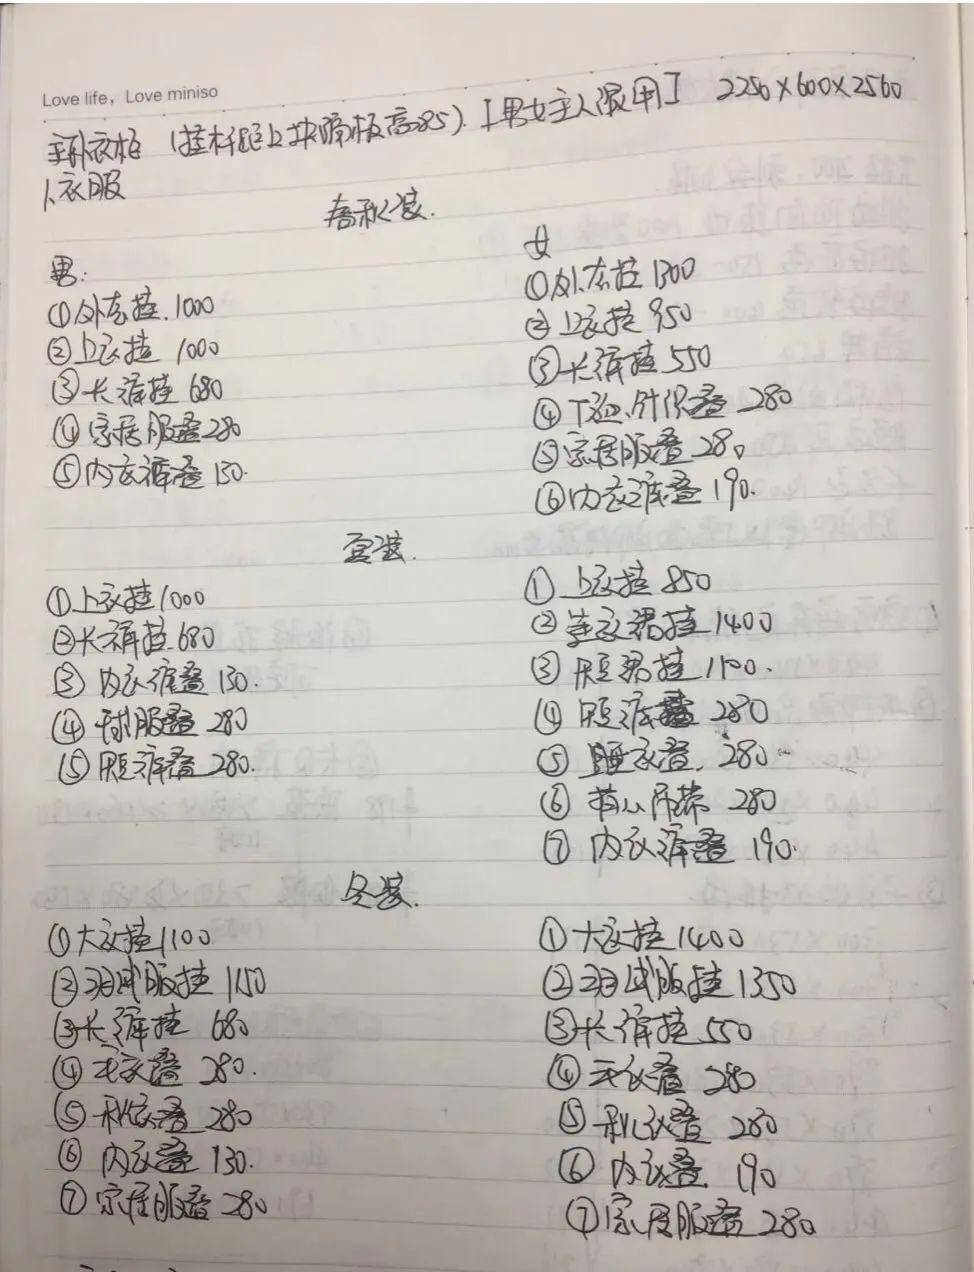 Love life, Love miniso
主卧衣柜 (挂杆距上块隔板高85). [男女主人服用] 2250×600×2560
1、衣服
春秋装.
男:
①外套挂.1000
②上衣挂 1000
③长裤挂 680
④家居服叠280
⑤内衣裤叠 130.
女
①外套挂 1300
②上衣挂 950
③长裤挂 550
④T恤、针织叠 280
⑤家居服叠 280
⑥内衣裤叠 190.
夏装.
①上衣挂1000
②长裤挂 680
③内衣裤叠 130.
④球服叠 280
⑤短裤叠 280.
①上衣挂 850
②连衣裙挂.1400
③短裙挂 1100.
④短裤叠 280
⑤睡衣叠.280
⑥背心吊带 280
⑦内衣裤叠 190.
冬装.
①大衣挂1100
②羽绒服挂 1150
③长裤挂 680
④毛衣叠 280.
⑤秋衣叠 280
⑥内衣叠 130.
⑦家居服叠 280
①大衣挂1400
②羽绒服挂1350
③长裤挂 550
④毛衣叠 280
⑤秋衣叠 280
⑥内衣叠 190
⑦家居服叠 280